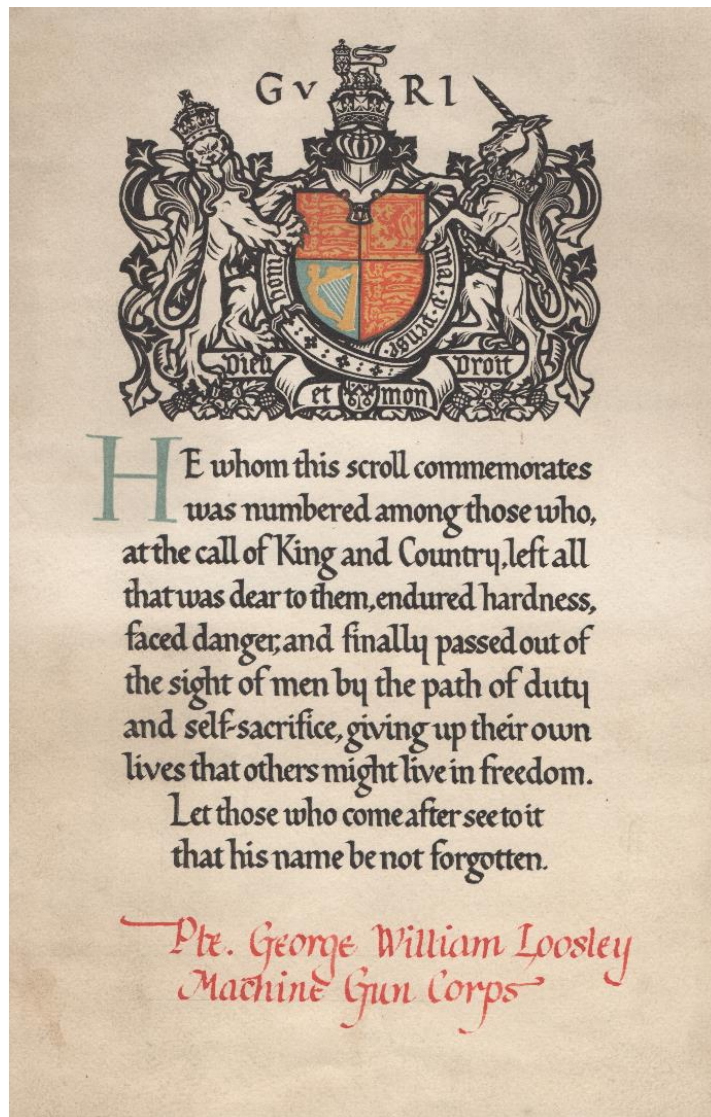 G V R I
HONI mal·y·pense·
Dieu Droit
et mon
HE whom this scroll commemorates
was numbered among those who,
at the call of King and Country, left all
that was dear to them, endured hardness,
faced danger, and finally passed out of
the sight of men by the path of duty
and self-sacrifice, giving up their own
lives that others might live in freedom.
Let those who come after see to it
that his name be not forgotten.
Pte. George William Loosley
Machine Gun Corps